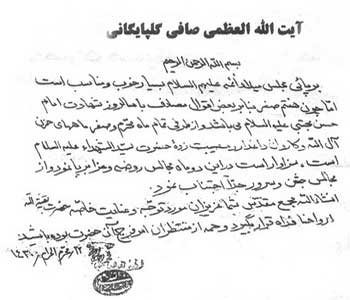 آیت الله العظمی صافی گلپایگانی
بسم الله الرحمن الرحیم
برپائی مجلس میلاد ائمه علیهم السلام بسیار خوب و مناسب است
اما چون هفتم صفر بنابر بعض اقوال مصادف با سالروز شهادت امام
حسن مجتبی علیه السلام می‌باشد و از طرفی تمام ماه محرم و صفر ماههای حزن
آل الله و کاروان داغدار و مصیبت زده حضرت سید الشهداء علیه السلام
است، سزاوار است در این دو ماه مجالس روضه و مراسم برپا نمود و از
مجالس جشن و سرور جداً اجتناب نمود.
انشاءالله جمیع مقدس شما عزیزان مورد توجه و عنایت خاصه حضرت بقیة الله
ارواحنا فداه قرار بگیرد و همه از منتظران امر فرج آن حضرت بوده باشید.
۱۲ محرم الحرام ۱۴۳۰